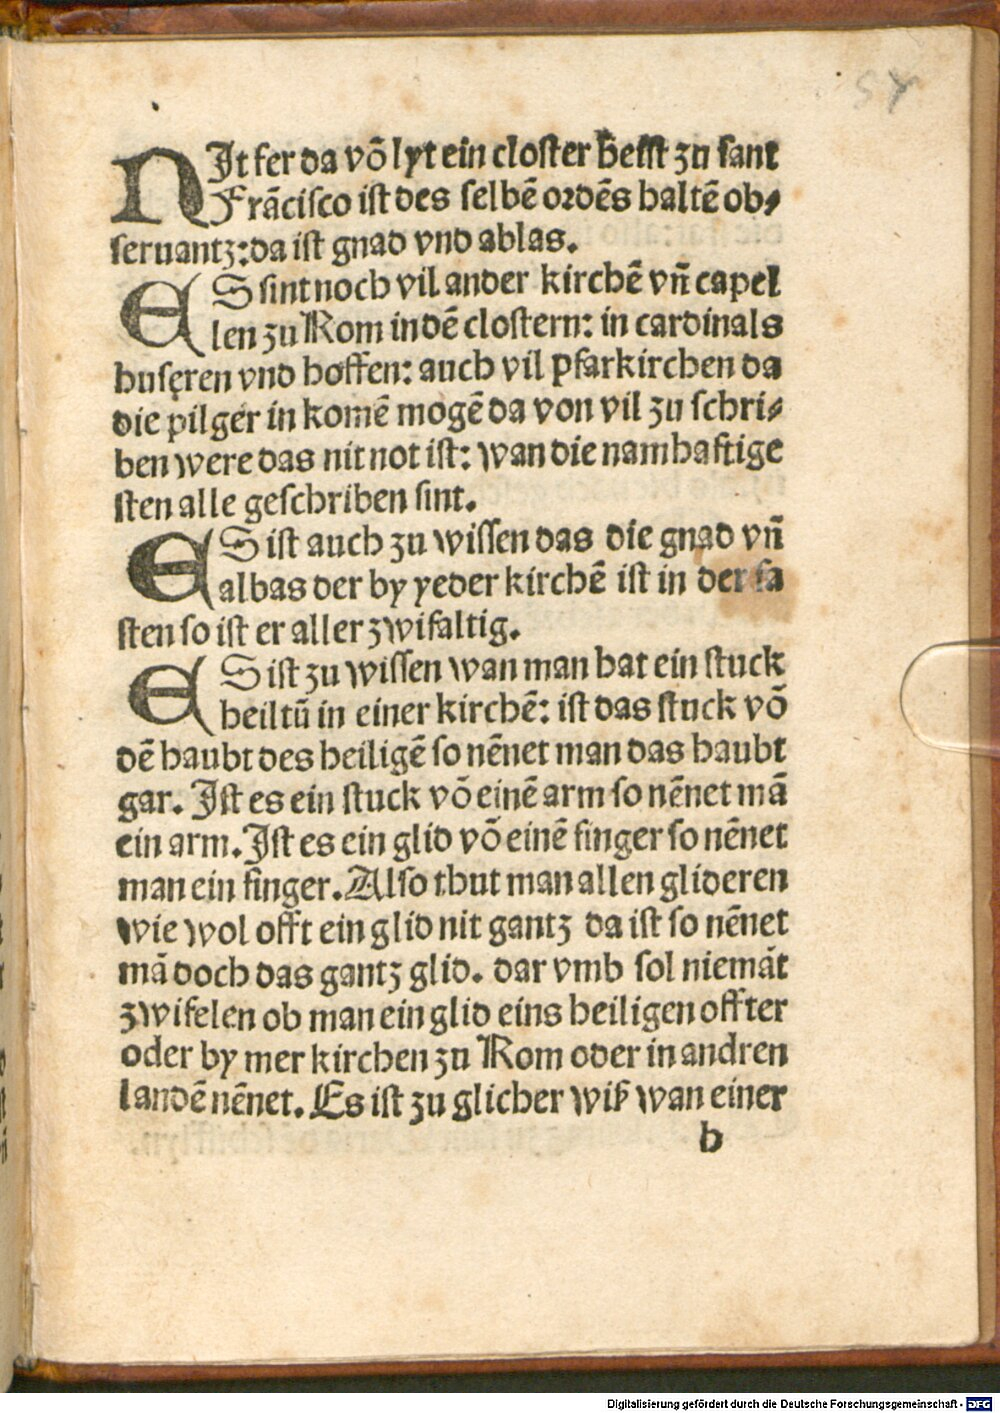 57
NIt fer da võ lyt ein closter heist zu sant
Frãcisco ist des selbẽ ordẽs haltẽ ob⸗
seruantz: da ist gnad vnd ablas.
ES sint noch vil ander kirchẽ vñ capel
len zu Rom in dẽ clostern: in cardinals
huseren vnd hoffen: auch vil pfarkirchen da
die pilger in komẽ mogẽ da von vil zu schri⸗
ben were das nit not ist: wan die namhaftige
sten alle geschriben sint.
ES ist auch zu wissen das die gnad vñ
albas der by yeder kirchẽ ist in der fa
sten so ist er aller zwifaltig.
ES ist zu wissen wan man hat ein stuck
heiltũ in einer kirchẽ: ist das stuck võ
dẽ haubt des heiligẽ so nẽnet man das haubt
gar. Ist es ein stuck võ einẽ arm so nẽnet mã
ein arm. Ist es ein glid võ einẽ finger so nẽnet
man ein finger. Also thut man allen glideren
wie wol offt ein glid nit gantz da ist so nẽnet
mã doch das gantz glid. dar vmb sol niemãt
zwifelen ob man ein glid eins heiligen offter
oder by mer kirchen zu Rom oder in andren
landẽ nẽnet. Es ist zu glicher wiß wan einer
b
Digitalisierung gefördert durch die Deutsche Forschungsgemeinschaft - DFG